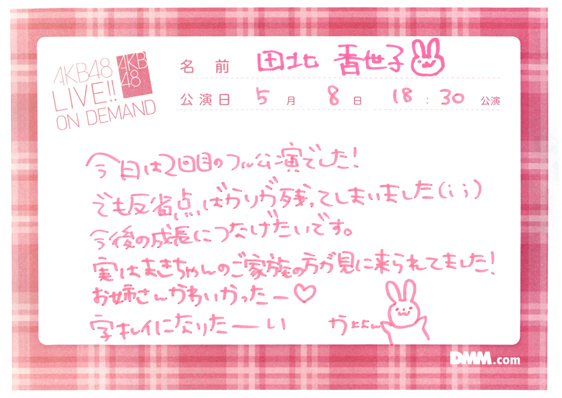 AKB48
LIVE!!
ON DEMAND
AKB
48
名 前 田北 香世子
公演日 5 月 8 日 18 : 30 公演
今日は2回目のフル公演でした!
でも反省点ばかりが残ってしまいました(;;)
今後の成長につなげたいです。
実はまきちゃんのご家族の方が見に来られてました!
お姉さんかわいかったー♡
字キレイになりたーい かよよん
DMM.com